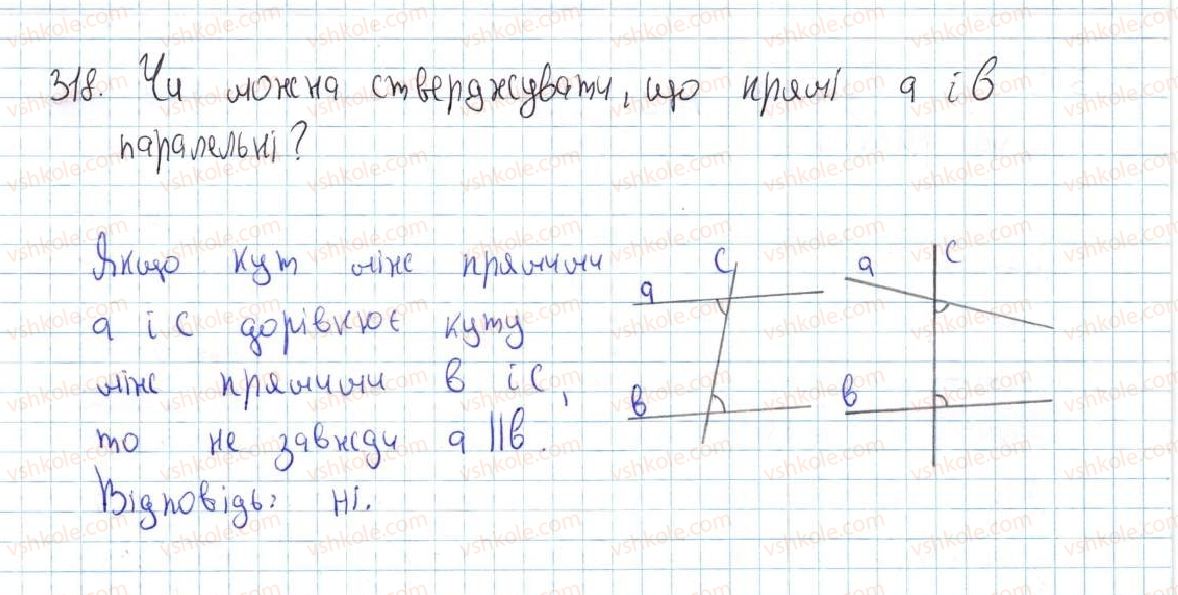 318. Чи можна стверджувати, що прямі а і в
паралельні?
Якщо кут між прямими
а і с дорівнює куту
між прямими в і с,
то не завжди а || в.
Відповідь: ні.
с
а
в
а
с
в
vshkole.com